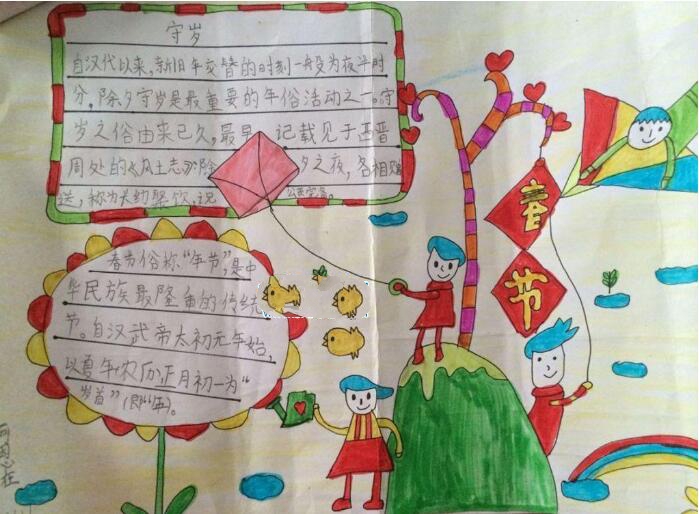 守岁
自汉代以来,新旧年交替的时刻一般为夜半时
分,除夕守岁是最重要的年俗活动之一。守
岁之俗由来已久,最早 记载见于西晋
周处的《风土志》:除 夕之夜,各相
送,称为
春节俗称"年节",是中
华民族最隆重的传统
节。自汉武帝太初元年始,
以夏年(农历)正月初一为"
岁首"
春
节